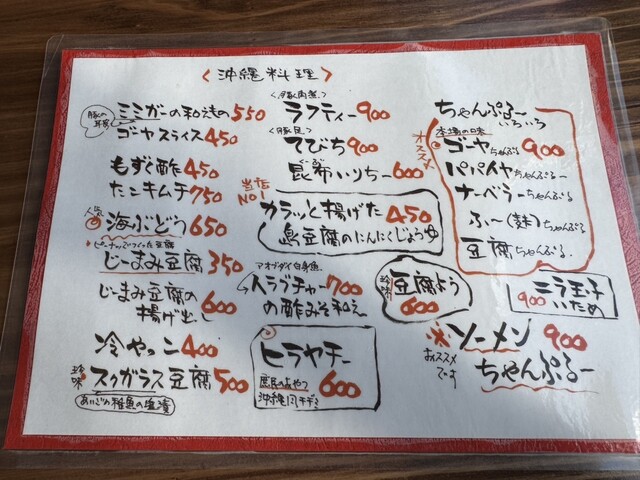 〈沖縄料理〉
豚の耳
ミミガーの和えもの 550
ゴーヤスライス 450
もずく酢 450
たこキムチ 750
人気
海ぶどう 650
ピーナッツでつくった豆腐
じーまみ豆腐 350
じーまみ豆腐の
揚げ出し 600
冷やっこ 400
珍味
スクガラス豆腐 500
あいごの稚魚の塩漬
〈豚肉煮〉
ラフティー 900
〈豚足〉
てびち 900
昆布いりちー 600
当店
NO1
カラッと揚げた 450
島豆腐のにんにくじょうゆ
アオブダイ白身魚
イラブチャー 700
の酢みそ和え
珍味
豆腐よう
600
ヒラヤチー
庶民のおやつ
沖縄風チヂミ
600
ちゃんぷるー
いろいろ
オススメ
本場の味
ゴーヤちゃんぷるー 900
パパイヤちゃんぷるー
ナーベラーちゃんぷる
ふー(麩)ちゃんぷる
豆腐ちゃんぷる
ニラ玉子
900 いため
※ソーメン 900
おススメ
です
ちゃんぷるー